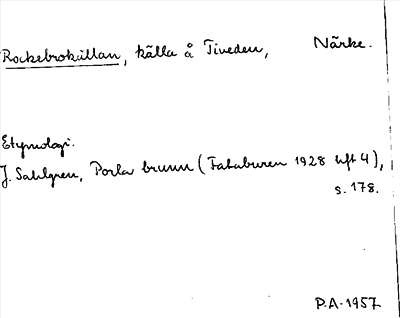 Rockebrokällan, källa å Tiveden, Närke.
Etymologi.
J. Sahlgren, Porla brunn (Fataburen 1928 hft 4),
s. 178.
P.A. 1957